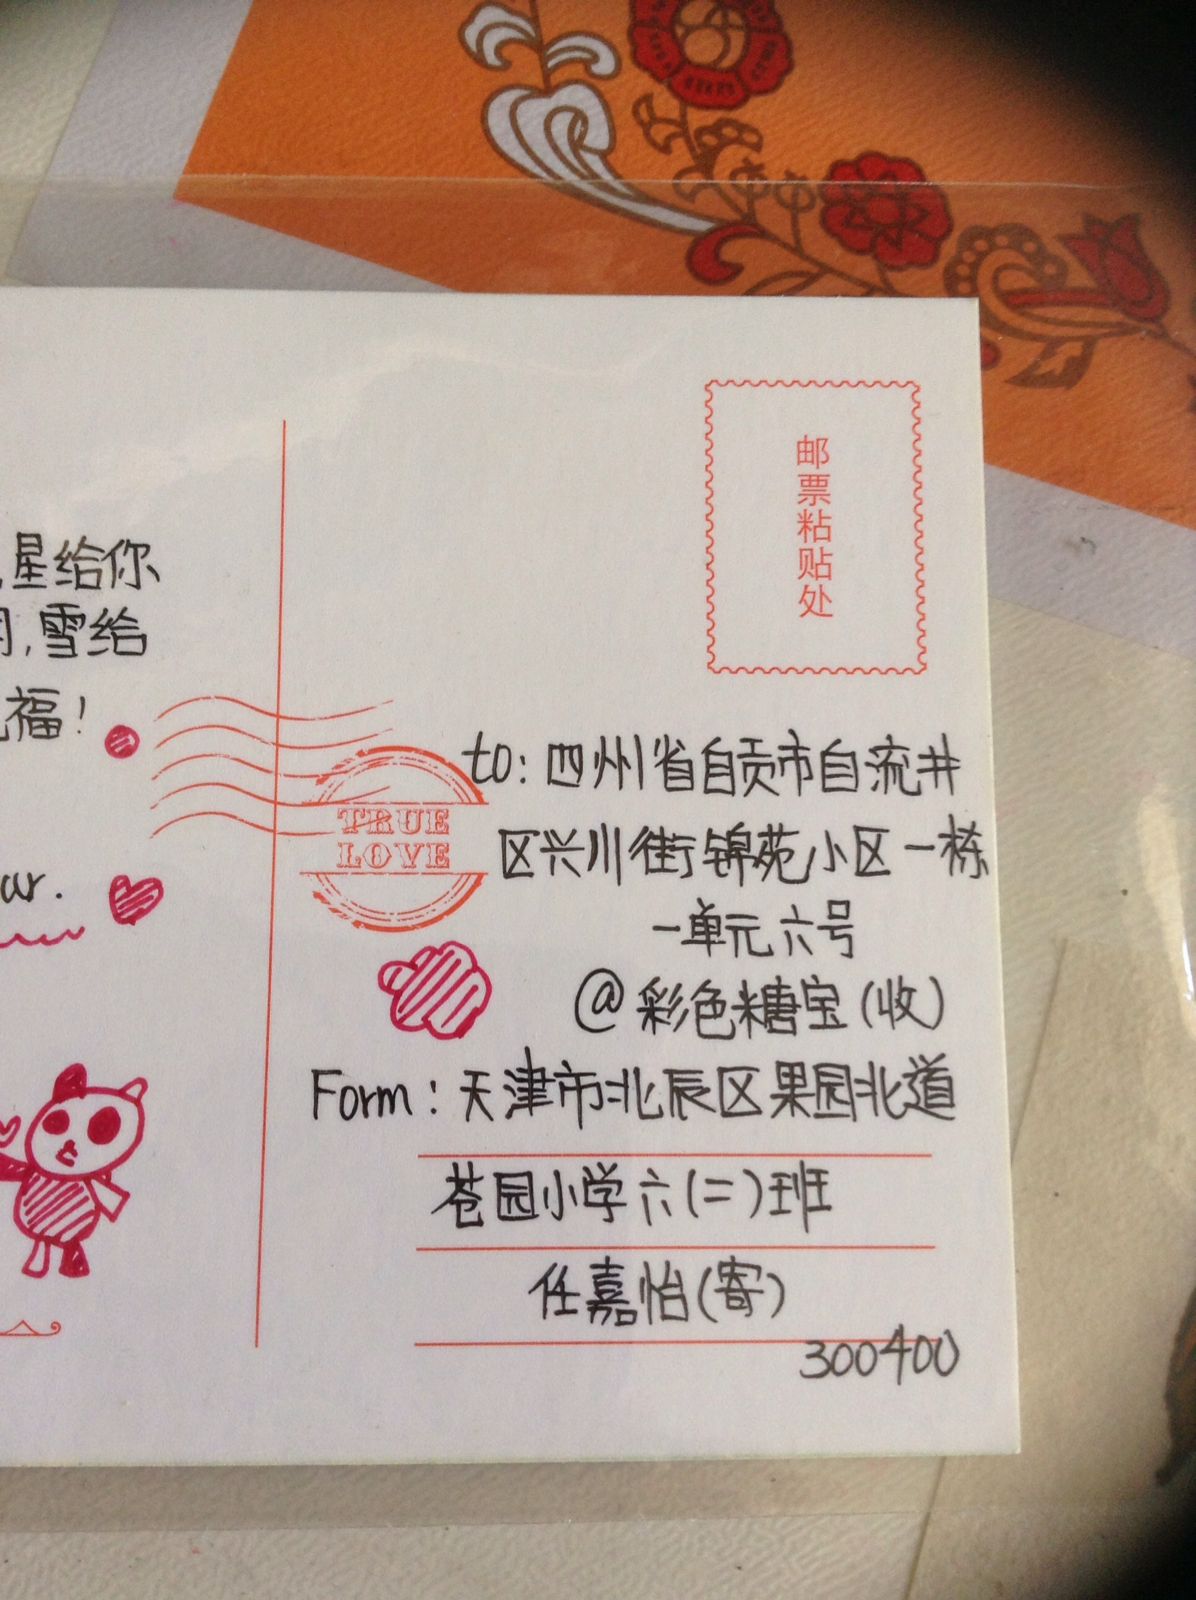 星给你
,雪给
福!
ar.
邮票粘贴处
TRUE
LOVE
to: 四州省自贡市自流井
区兴川街锦苑小区一栋
一单元六号
@彩色糖宝(收)
Form: 天津市北辰区果园北道
苍园小学六(二)班
任嘉怡(寄)
300400